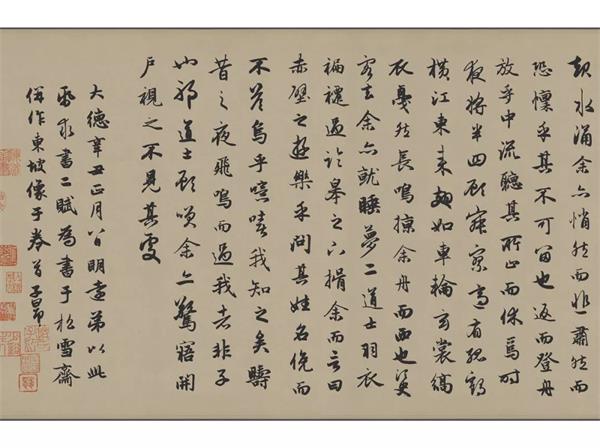 起水涌余亦悄然而悲肅然而
恐懍乎其不可留也返而登舟
放乎中流聽其所止而休焉時
夜將半四顧寂寥適有孤鶴
橫江東來翅如車輪玄裳縞
衣戛然長鳴掠余舟而西也須臾
客去余亦就睡夢二道士羽衣
褊褼過臨皋之下揖余而言曰
赤壁之遊樂乎問其姓名俛而
不答嗚乎噫嘻我知之矣疇
昔之夜飛鳴而過我者非子
也邪道士顧笑余亦驚寤開
戶視之不見其處
大德辛丑正月八日明遠弟以此
紙求書二賦為書于松雪齋
併作東坡像于卷首子昂